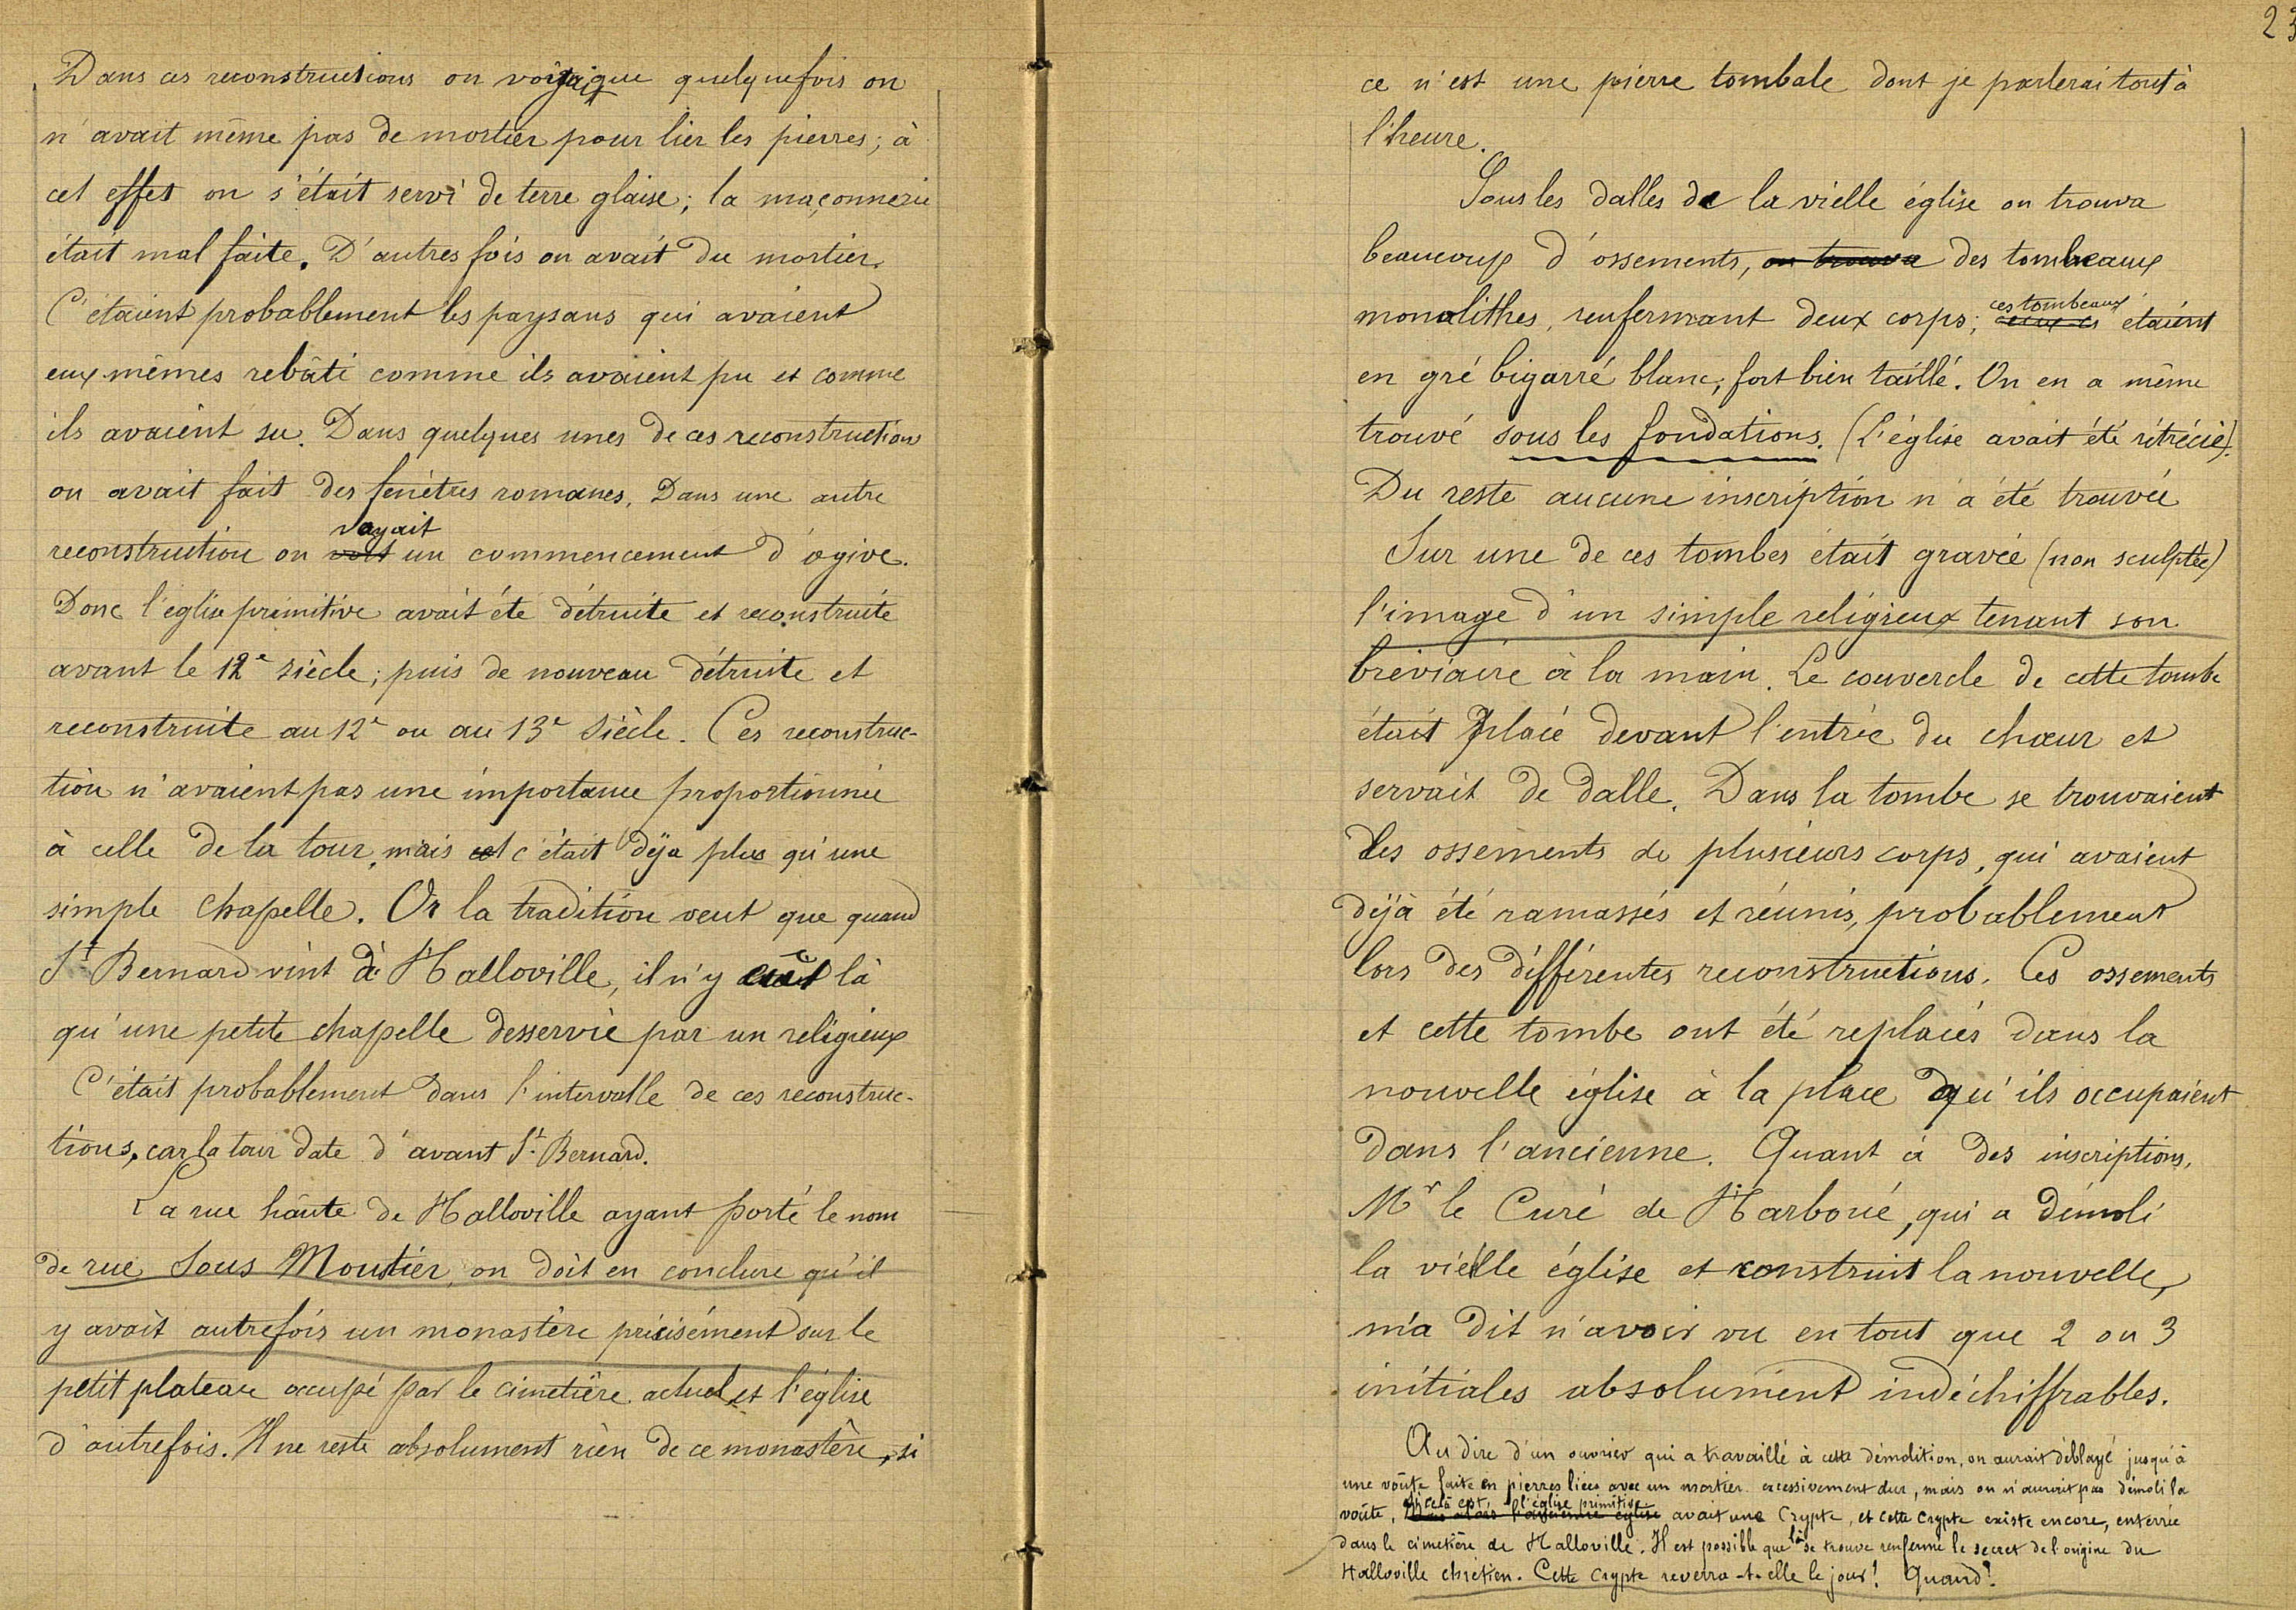 Dans ces reconstructions on voyait que quelquefois on
n'avait même pas de mortier pour lier les pierres; à
cet effet on s'était servi de terre glaise; la maçonnerie
était mal faite. D'autres fois on avait du mortier.
C'étaient probablement les paysans qui avaient
eux mêmes rebâti comme ils avaient pu et comme
ils avaient su. Dans quelques unes de ces reconstructions
on avait fait des fenêtres romanes. Dans une autre
reconstruction on voyait un commencement d'ogive.
Donc l'église primitive avait été détruite et reconstruite
avant le 12e siècle; puis de nouveau détruite et
reconstruite au 12e ou au 13e siècle. Ces reconstruc-
tion n'avaient pas une importance proportionnée
à celle de la tour, mais c'était déja plus qu'une
simple chapelle. Or la tradition veut que quand
St Bernard vint à Halloville, il n'y eût là
qu'une petite chapelle desservie par un religieux
C'était probablement dans l'intervalle de ces reconstruc-
tions, car la tour date d'avant St. Bernard.
La rue haute de Halloville ayant porté le nom
de rue Sous Moutier, on doit en conclure qu'il
y avait autrefois un monastère précisément sur le
petit plateau occupé par le cimetière actuel et l'église
d'autrefois. Il ne reste absolument rien de ce monastère, si
23
ce n'est une pierre tombale dont je parlerai tout à
l'heure.
Sous les dalles de la vielle église on trouva
beaucoup d'ossements, on trouva des tombeaux
monolithes, renfermant deux corps; ces tombeaux étaient
en gré bigarré blanc, fort bien taillé. On en a même
trouvé sous les fondations. (L'église avait été rétrécie).
Du reste aucune inscription n'a été trouvée
Sur une de ces tombes était gravée (non sculptée)
l'image d'un simple religieux tenant son
bréviaire à la main. Le couvercle de cette tombe
était placé devant l'entrée du chœur et
servait de dalle. Dans la tombe se trouvaient
des ossements de plusieurs corps, qui avaient
déjà été ramassés et réunis, probablement
lors des différentes reconstructions. Ces ossements
et cette tombe ont été replacés dans la
nouvelle église à la place qu'ils occupaient
dans l'ancienne. Quant à des inscriptions,
Mr le Curé de Harboué, qui a démoli
la vieille église et construit la nouvelle,
m'a dit n'avoir vu en tout que 2 ou 3
initiales absolument indéchiffrables.
Au dire d'un ouvrier qui a travaillé à cette démolition, on aurait déblayé jusqu'à
une voûte faite en pierres liées avec un mortier excessivement dur, mais on n'aurait pas démoli la
voûte. Si cela est, l'église primitive avait une Crypte, et cette crypte existe encore, enterrée
dans le cimetière de Halloville. Il est possible que là se trouve renfermé le secret de l'origine du
Halloville chrétien. Cette crypte reverra-t-elle le jour? Quand?